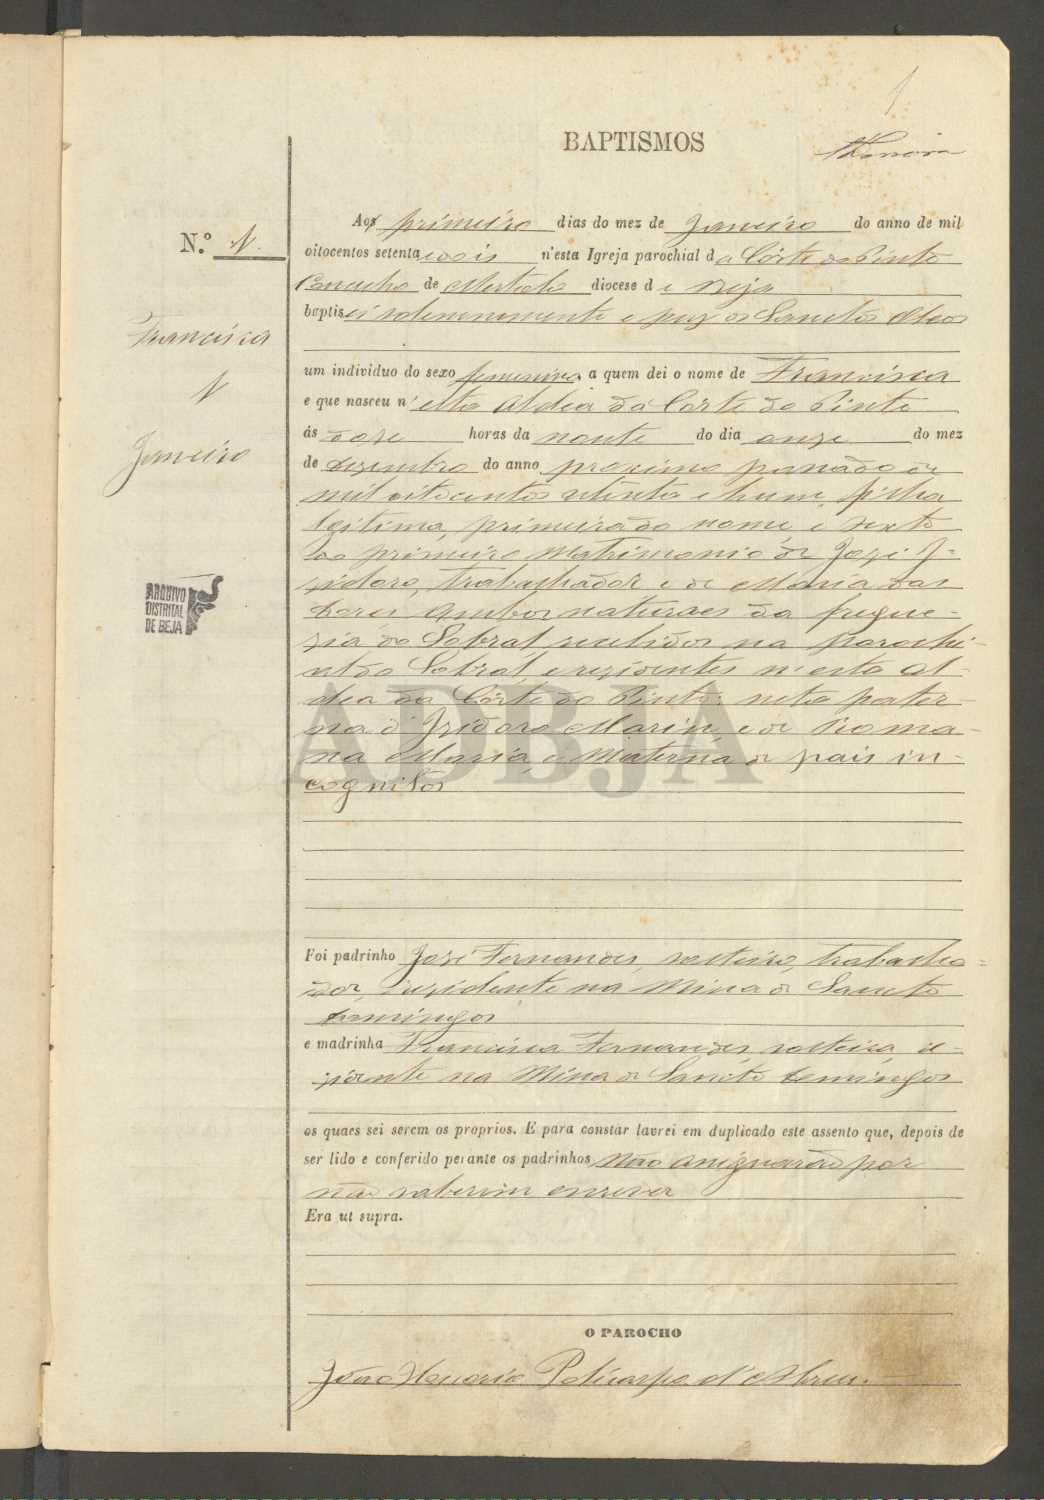 1
BAPTISMOS
N.º 1
Aos primeiro dias do mez de Janeiro do anno de mil
oitocentos setenta e dois n'esta Igreja parochial da Côrte do Pinto
Concelho de Mertola diocese de Beja
baptisei solemnemente e puz os Sanctos Oleos
Francisca
1
Janeiro
um individuo do sexo femenino, a quem dei o nome de Francisca
e que nasceu n'esta Aldeia da Côrte do Pinto
ás doze horas da noute do dia onze do mez
de Dezembro do anno proximo passado de
mil oitocentos setenta e hum, filha
legitima, primeira do nome, e sexto
do primeiro Matrimonio de Jozé I-
zidoro, trabalhador e de Maria das
Dores ambos naturaes da fregue-
zia do Sobral recebidos na parochi-
al do Sobral, e rezidentes n'esta Al-
deia da Côrte do Pinto: neta pater-
na d'Izidoro Marin, e de Roma-
na Maria, e Materna de pais in-
cognitos
ARQUIVO
DISTRITAL
DE BEJA
ADBJA
Foi padrinho Jozé Fernandes, solteiro, trabalha-
dor, rezidente na Mina de Sancto
Domingos
e madrinha Francisca Fernandes solteira re-
zidente na Mina de Sancto Domingos
os quaes sei serem os proprios. E para constar lavrei em duplicado este assento que, depois de
ser lido e conferido perante os padrinhos não assignarão por
não saberem escrever
Era ut supra.
O PAROCHO
João Honorio Policarpo d'Abreu.